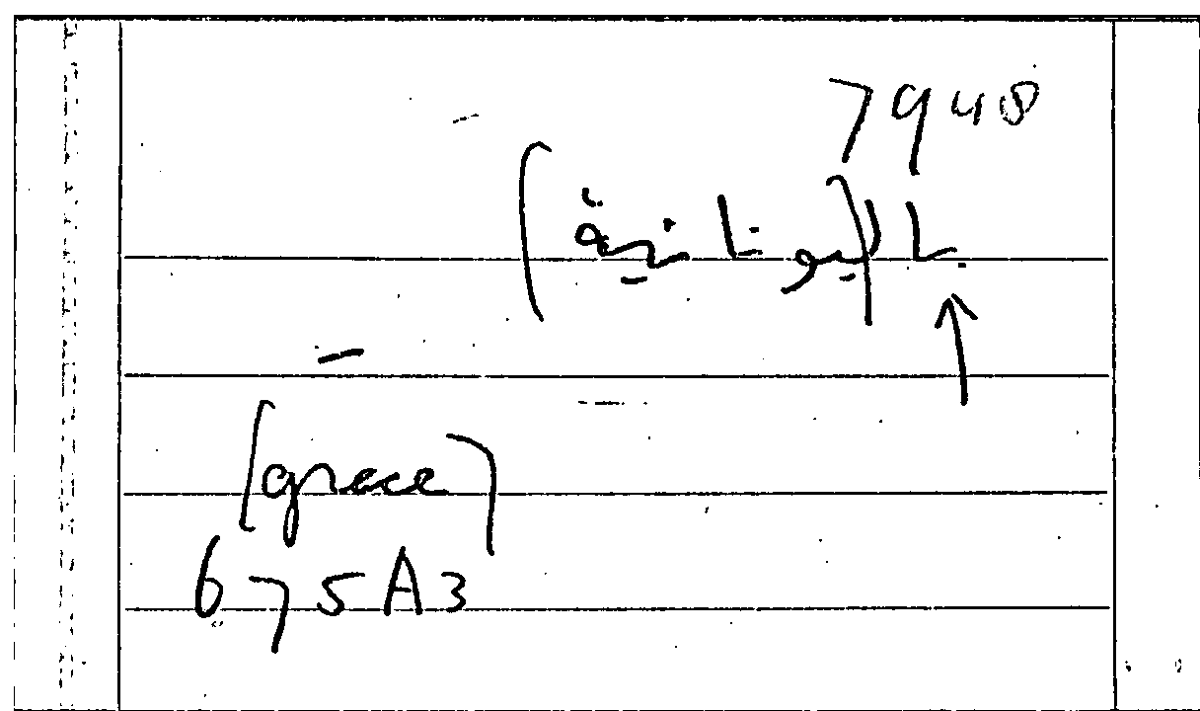 7948
با (اليونانية)
(grece)
675A3